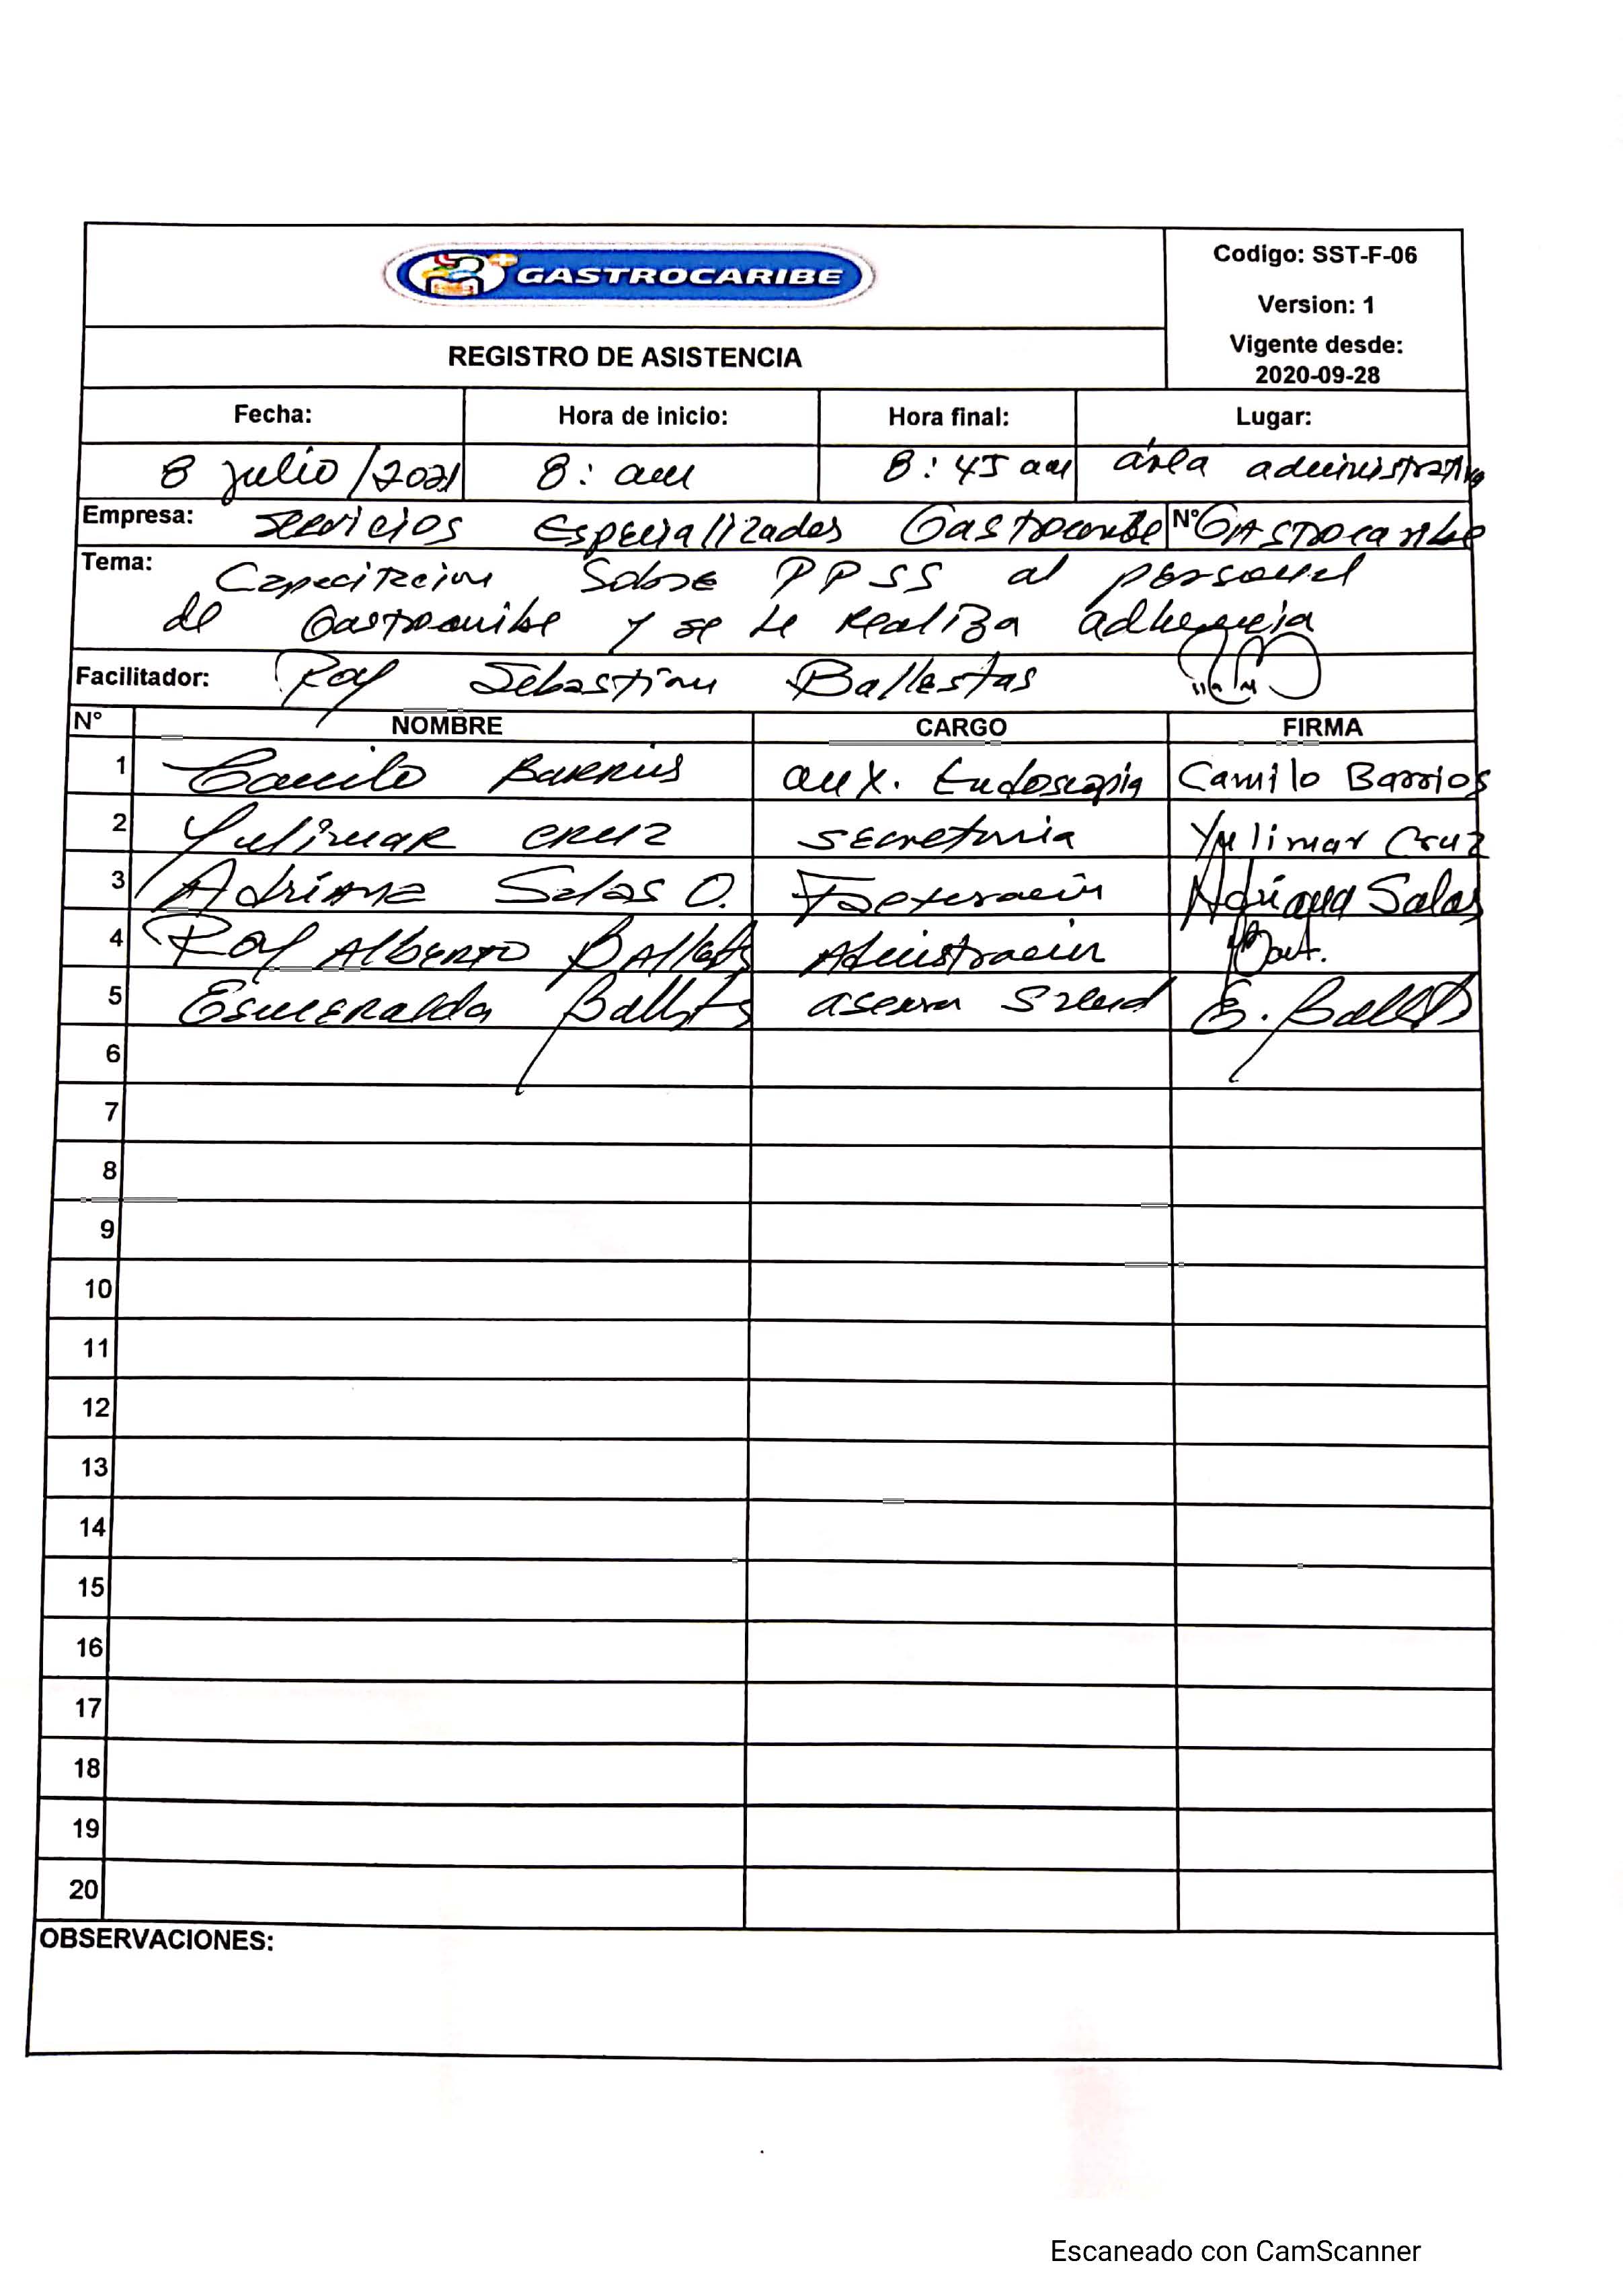 GASTROCARIBE
Codigo: SST-F-06
Version: 1
Vigente desde:
2020-09-28
REGISTRO DE ASISTENCIA
Fecha: Hora de inicio: Hora final: Lugar:
8 julio/2021 8: am 8:45 am área administrativa
Empresa: Servicios Especializados Gastrocaribe N° Gastrocaribe
Tema: Capacitacion Sobre PPSS al personal
de Gastrocaribe y se le realiza adherencia
Facilitador: Roy Sebastian Ballestas
N° NOMBRE CARGO FIRMA
1 Camilo Barrios aux. Endoscopia Camilo Barrios
2 Yulimar Cruz Secretaria Yulimar Cruz
3 Adriana Salas O. Facturación Adriana Salas
4 Roy Alberto Ballestas
5 Esmeralda Ballestas asesora Salud E. Ballestas
6
7
8
9
10
11
12
13
14
15
16
17
18
19
20
OBSERVACIONES:
Escaneado con CamScanner